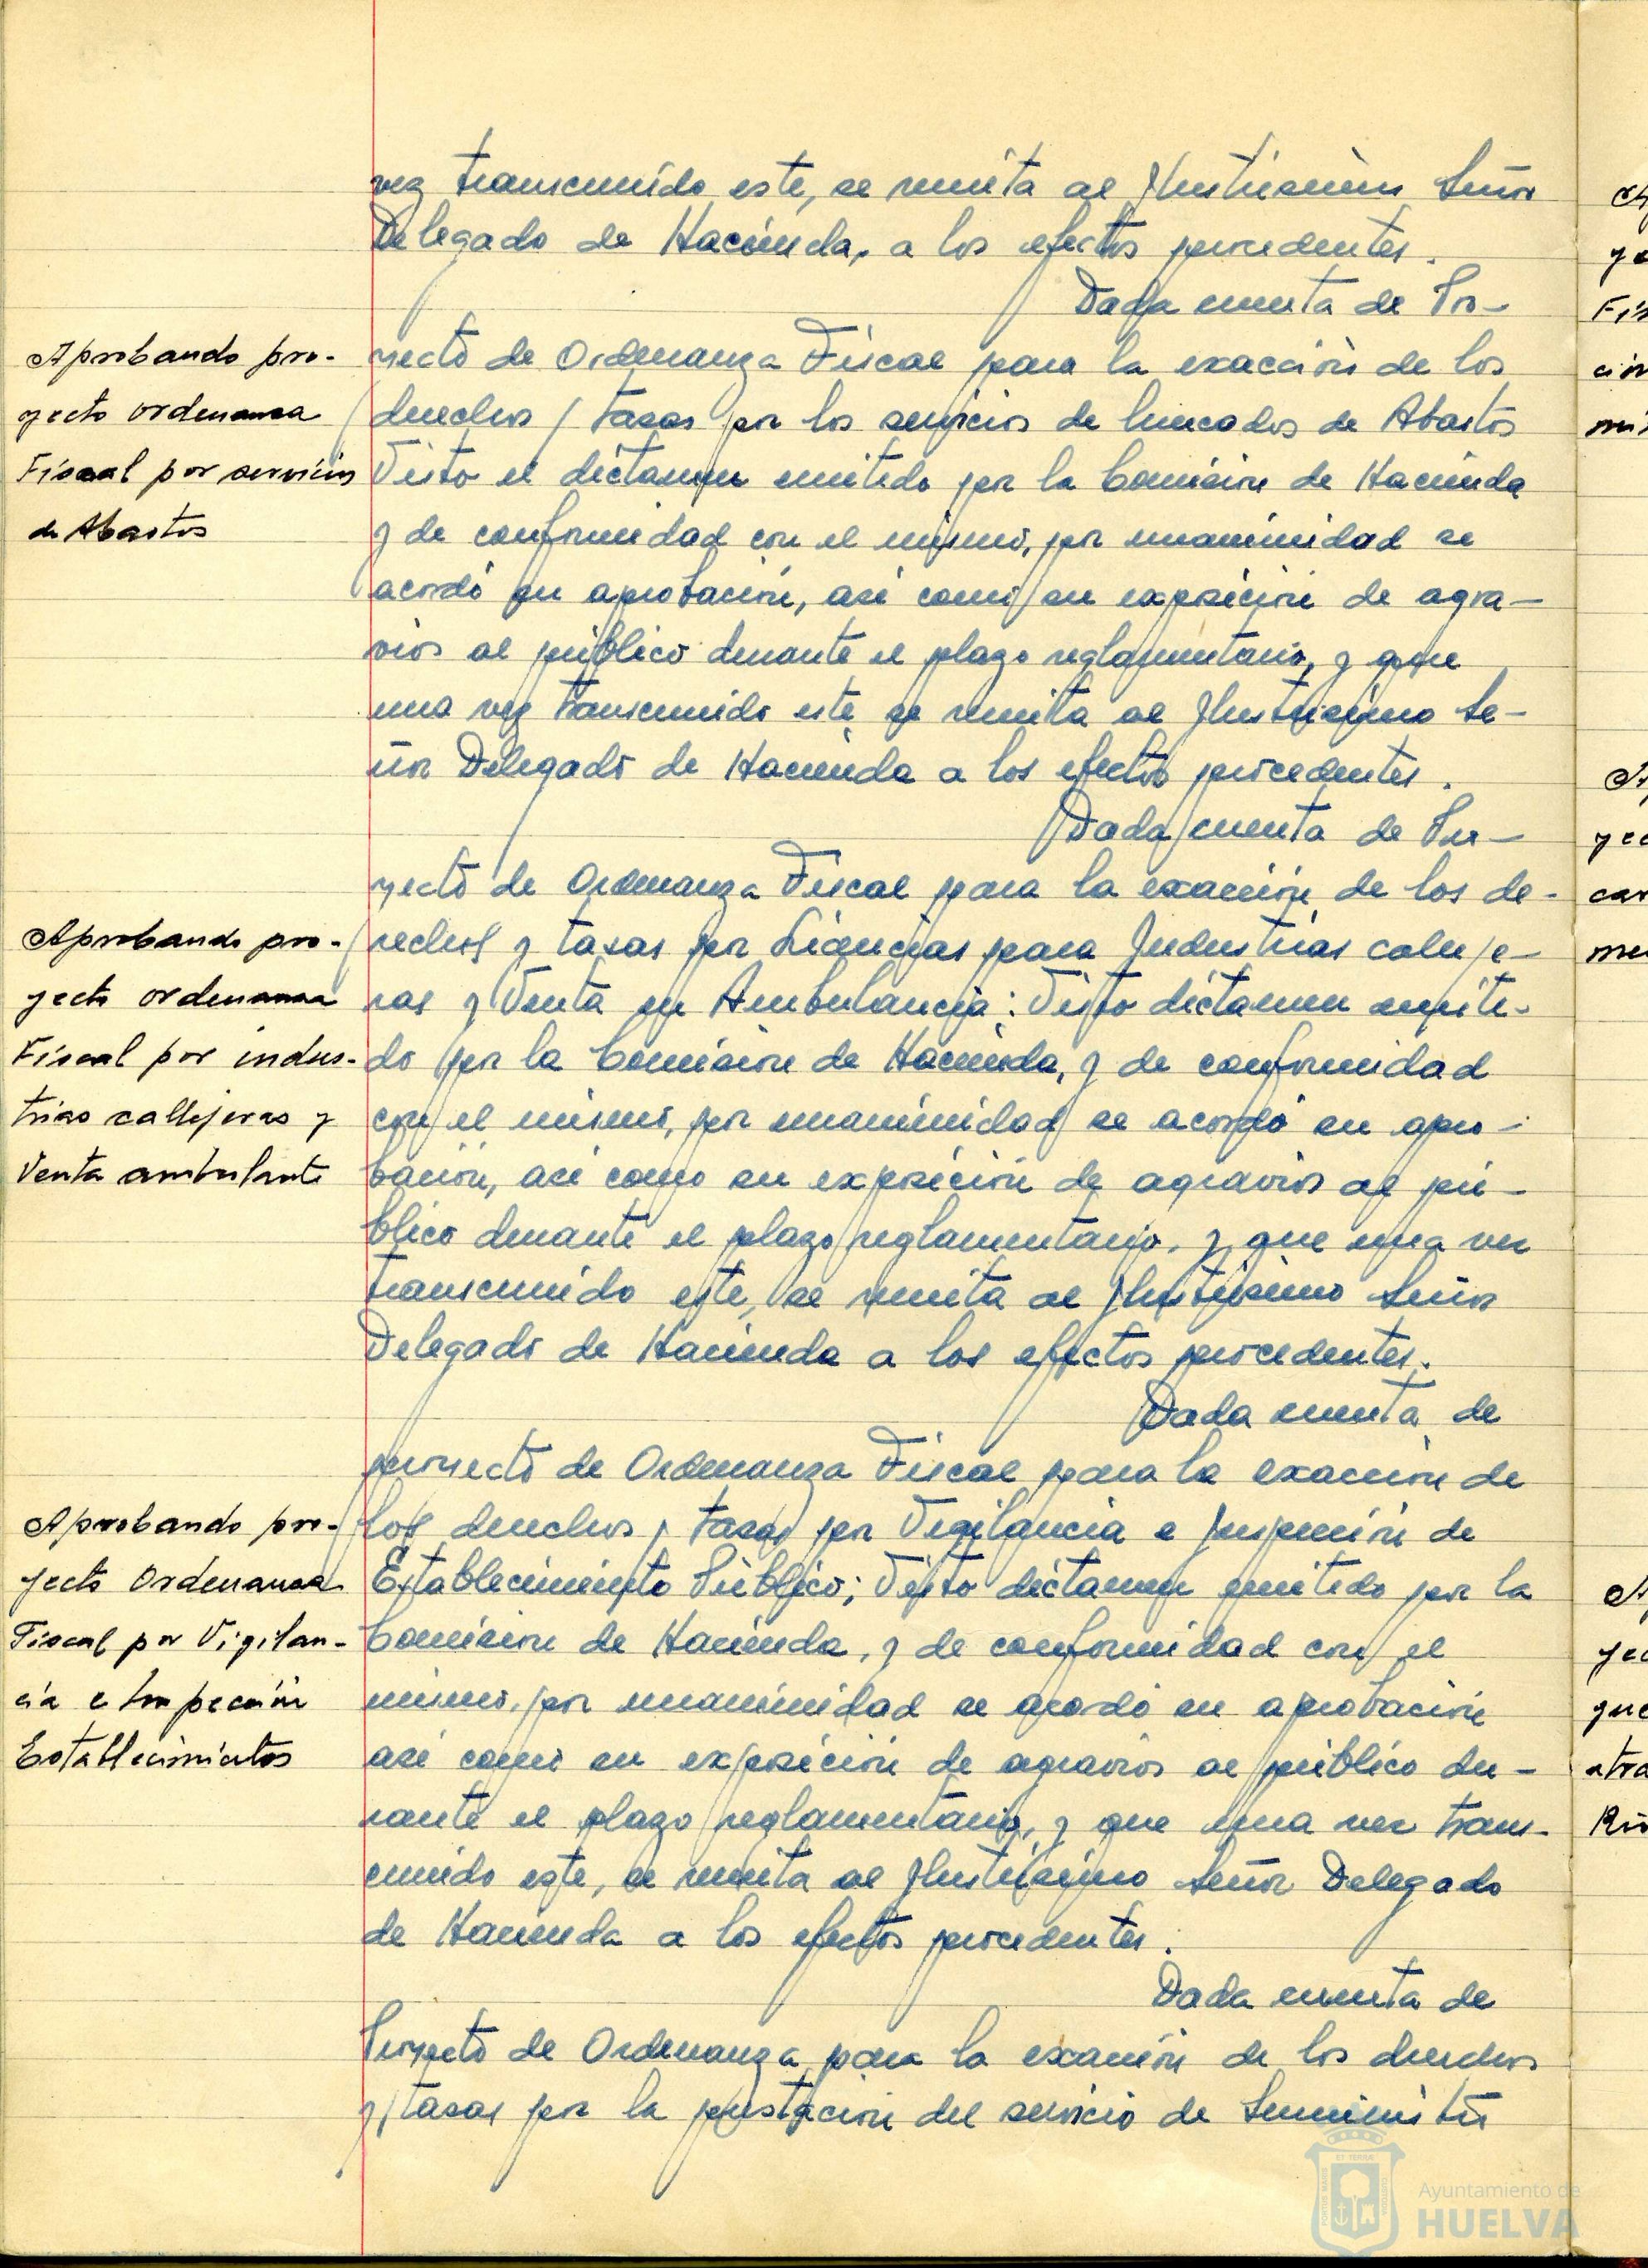 vez transcurrido este, se remita al Ilustrísimo Señor
Delegado de Hacienda, a los efectos procedentes.
Dada cuenta de Pro-
Aprobando pro-
yecto ordenanza
Fiscal por servicios
de Abastos
yecto de Ordenanza Fiscal para la exacción de los
derechos y tasas por los servicios de Mercados de Abastos
Visto el dictamen emitido por la Comisión de Hacienda
y de conformidad con el mismo, por unanimidad se
acordó su aprobación, así como su exposición de agra-
vios al público durante el plazo reglamentario, y que
una vez transcurrido este se remita al Ilustrísimo Se-
ñor Delegado de Hacienda a los efectos procedentes.
Dada cuenta de Pro-
yecto de Ordenanza Fiscal para la exacción de los de-
Aprobando pro-
yecto ordenanza
Fiscal por indus-
trias callejeras y
Venta ambulante
rechos y tasas por Licencias para Industrias calleje-
ras y Venta en Ambulancia: Visto dictamen emiti-
do por la Comisión de Hacienda, y de conformidad
con el mismo, por unanimidad se acordó su apro-
bación, así como su exposición de agravios al pú-
blico durante el plazo reglamentario, y que una vez
transcurrido este, se remita al Ilustrísimo Señor
Delegado de Hacienda a los efectos procedentes.
Dada cuenta de
proyecto de Ordenanza Fiscal para la exacción de
Aprobando pro-
yecto Ordenanza
Fiscal por Vigilan-
cia e Inspección
Establecimientos
los derechos y tasas por Vigilancia e Inspección de
Establecimiento Público; Visto dictamen emitido por la
Comisión de Hacienda, y de conformidad con el
mismo, por unanimidad se acordó su aprobación
así como su exposición de agravios al público du-
rante el plazo reglamentario, y que una vez trans-
currido este, se remita al Ilustrísimo Señor Delegado
de Hacienda a los efectos procedentes.
Dada cuenta de
Proyecto de Ordenanza para la exacción de los derechos
y tasas por la prestación del servicio de Suministro
Ayuntamiento de
HUELVA